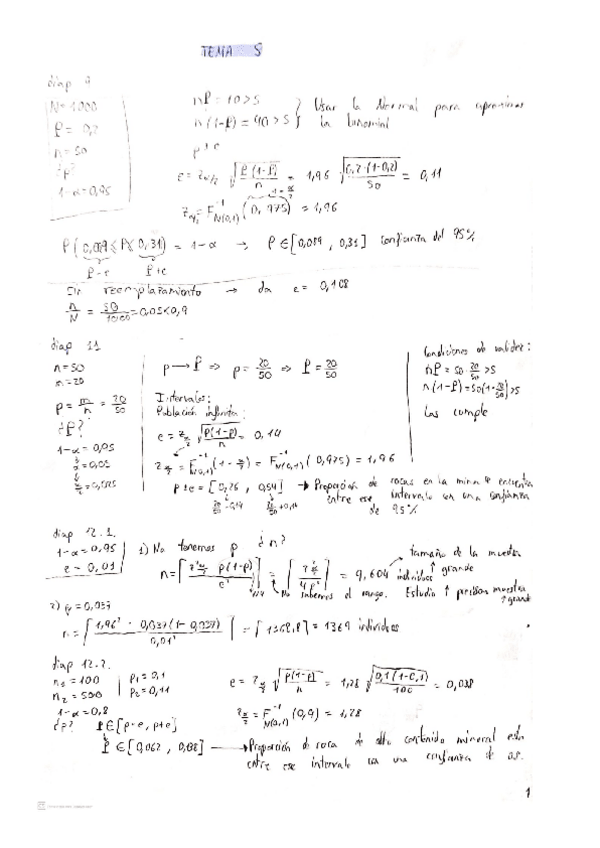 TEMA 5
diap 9
N=1000
P = 0,2
n = 50
¿P?
1-α = 0,95
nP = 10 > 5
n(1-P) = 40 > 5
Usar la Normal para aproximar
la binomial
p ± e
e = z_{α/2} √(P(1-P)/n) = 1,96 √(0,2·(1-0,2)/50) = 0,11
z_{α/2} = F⁻¹_{N(0,1)} (0,975) = 1,96
P(0,089 ≤ P ≤ 0,31) = 1-α → P ∈ [0,089 , 0,31] confianza del 95%
P-e P+e
Sin reemplazamiento → da e = 0,108
n/N = 50/1000 = 0,05 < 0,9
diap 11
n = 50
m = 20
p = m/n = 20/50
¿P?
1-α = 0,95
α = 0,05
α/2 = 0,025
p → P ⇒ p = 20/50 ⇒ P = 20/50
Intervalos:
Población infinita:
e = z_{α/2} √(P(1-P)/n) = 0,14
z_{α/2} = F⁻¹_{N(0,1)} (1-α/2) = F⁻¹_{N(0,1)} (0,975) = 1,96
p ± e = [0,26 , 0,54] → Proporción de rocas en la mina se encuentra
20/50 - 0,14 20/50 + 0,14
entre ese intervalo con una confianza
de 95%
Condiciones de validez:
nP = 50 · 20/50 > 5
n(1-P) = 50(1-20/50) > 5
Las cumple
diap 12.1.
1-α = 0,95
e = 0,01
1) No tenemos p ¿n?
n = ⌈z²_{α/2} p(1-p)/e²⌉ = ⌈z²_{α/2}/4e²⌉ = 9,604 individuos
tamaño de la muestra
↑ grande
No sabemos el rango. Estudio ↑ preciso muestra
↑ grande
2) p = 0,037
n = ⌈1,96² · 0,037(1-0,037)/0,01²⌉ = ⌈1368,8⌉ = 1369 individuos
diap 12.2.
n₁ = 100
n₂ = 500
1-α = 0,8
p₁ = 0,1
p₂ = 0,11
e = z_{α/2} √(P(1-P)/n) = 1,28 √(0,1(1-0,1)/100) = 0,038
z_{α/2} = F⁻¹_{N(0,1)} (0,9) = 1,28
¿p? P ∈ [p-e, p+e]
P ∈ [0,062 , 0,138] → Proporción de roca de alto contenido mineral está
entre ese intervalo con una confianza de 0,8.
1